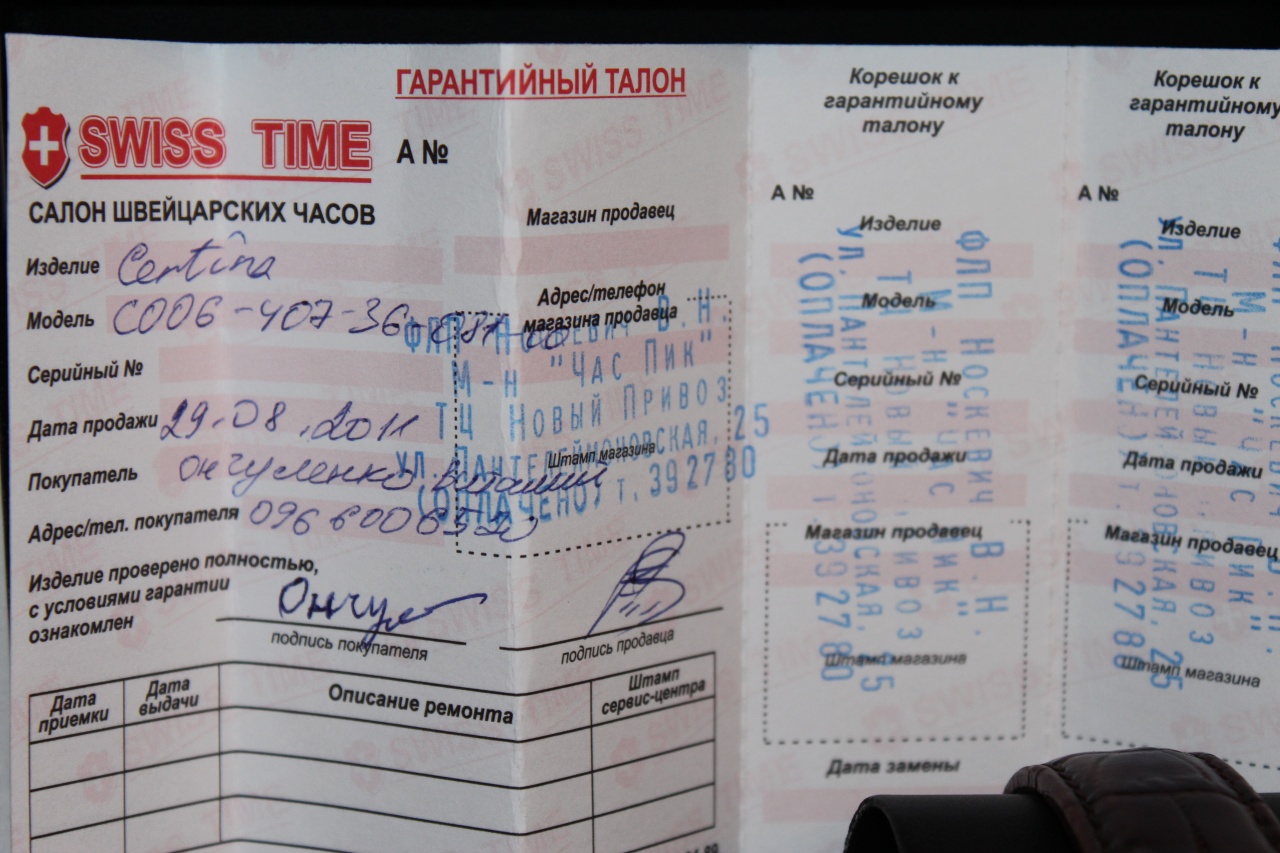 ГАРАНТИЙНЫЙ ТАЛОН
SWISS TIME
А №
САЛОН ШВЕЙЦАРСКИХ ЧАСОВ
Изделие Certina
Модель C006-407-36-081-00
Серийный №
Дата продажи 29.08.2011
Покупатель Ончуленко
Адрес/тел. покупателя
Изделие проверено полностью,
с условиями гарантии
ознакомлен
Ончул
подпись покупателя
подпись продавца
Магазин продавец
Адрес/телефон
магазина продавца
Штамп магазина
ФЛП Носкевич В.Н.
М-н "Час Пик"
ТЦ Новый Привоз
ул. Пантелеймоновская, 25
(ОПЛАЧЕНО) т. 392780
Дата приемки
Дата выдачи
Описание ремонта
Штамп сервис-центра
Корешок к
гарантийному
талону
А №
Изделие
Модель
Серийный №
Дата продажи
Магазин продавец
Штамп магазина
Дата замены
ФЛП Носкевич В.Н.
М-н "Час Пик"
ТЦ Новый Привоз
ул. Пантелеймоновская, 25
(ОПЛАЧЕНО) т. 392780
Корешок к
гарантийному
талону
А №
Изделие
Модель
Серийный №
Дата продажи
Магазин продавец
Штамп магазина
М-н "Час Пик"
ул. Пантелеймоновская, 25
(ОПЛАЧЕНО) т. 392780